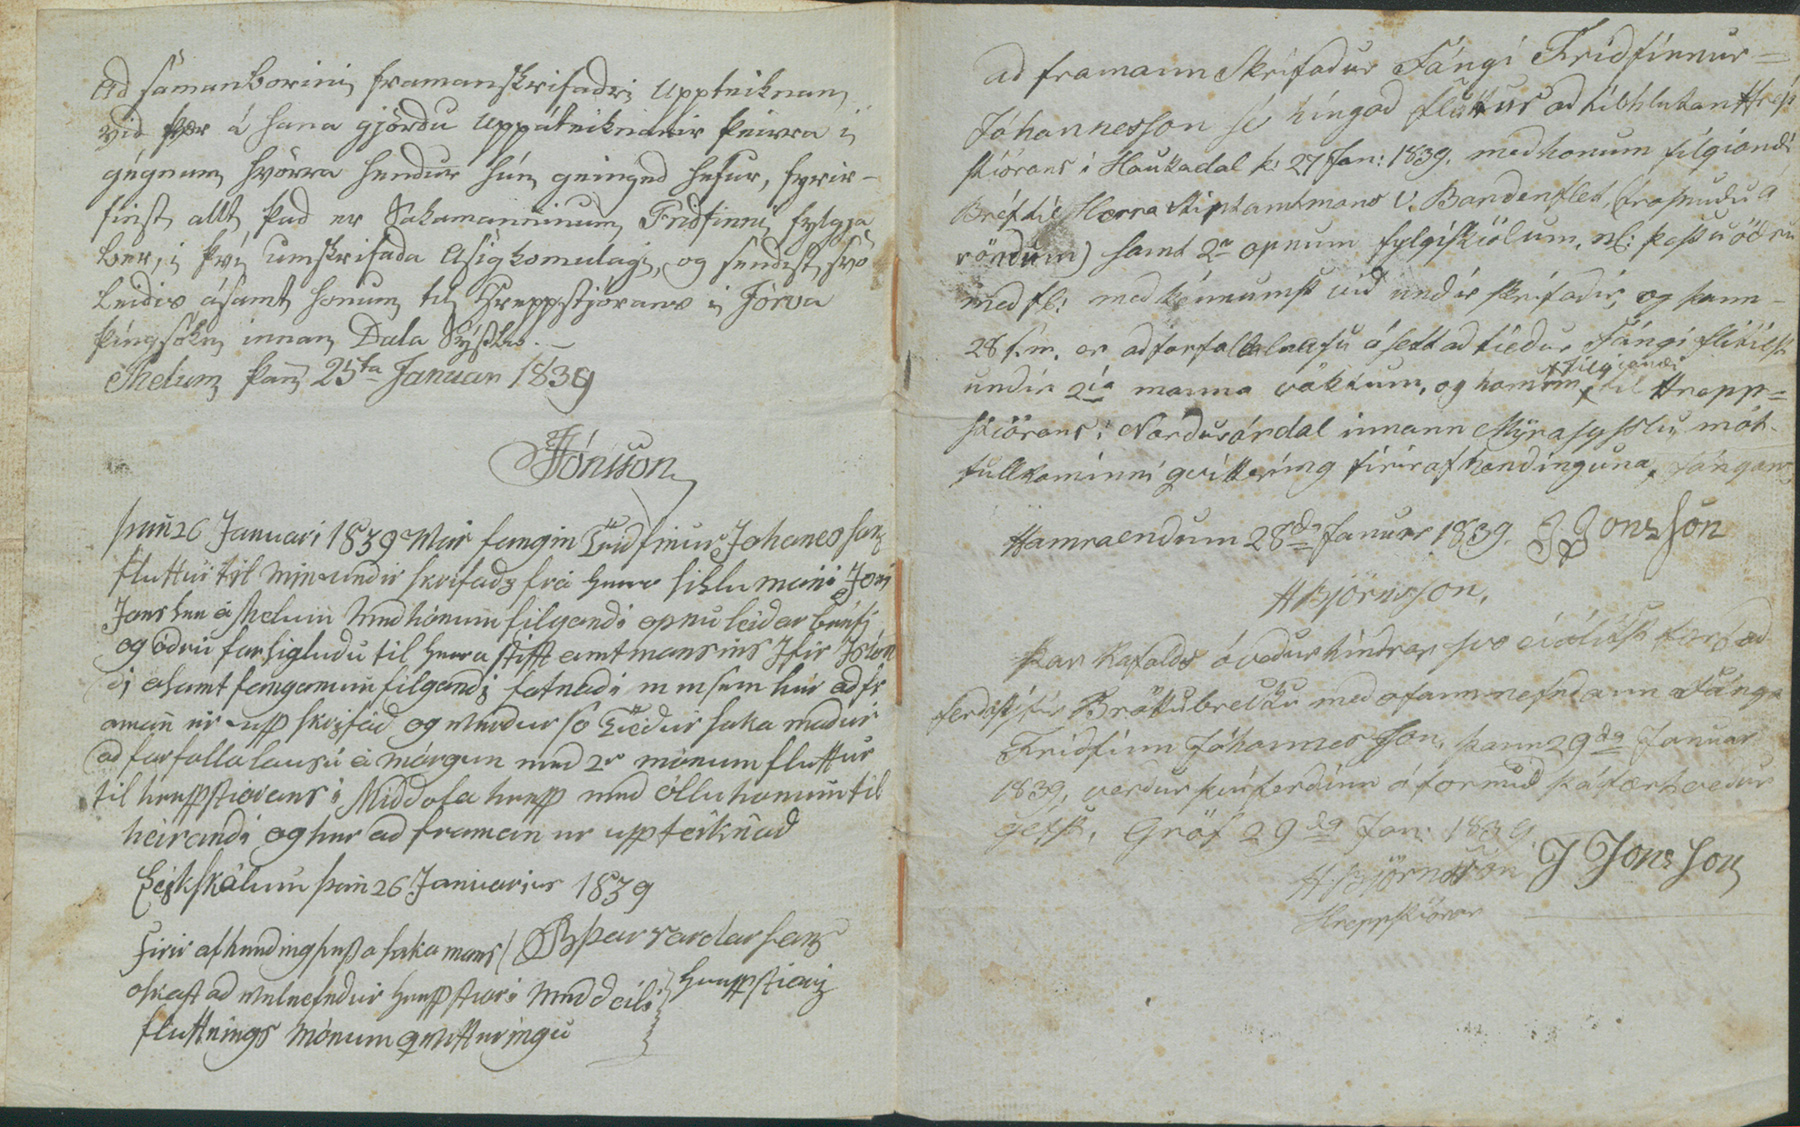 Ad samanborinni framanskrifadri Uppteiknan,
vid þær á hana gjördu Uppáteiknanir þeirra i
gégnum hvörra hendur hún geinged hefur, fyrir-
finst allt, þad er Sakamanninum Fridfinni fylgja
ber, i þvi umskrifada Asigkomulagi, og sendist svo
leidis ásamt honum til Hreppstjorans i Jörva
þingsókn innan Dala Sýslu. -
Melum þann 25ta Januar 1839
JJónsson
þann 26 Januari 1839 War fangin Fridfinur Johanes son
fluttur til min undir skrifads frá herra sislu mani Joni
Jons sine á Melum med hönum filgandi opnu leidar brefi
og ödru forsigludu til herra stiftamtmansins Ifir Islan
di asamt fanganum filgandi fatnadi m m sem hier ad fr
aman er upp skrifad og verdur so tiedur saka madur
ad forfallalausu á morgun med 2r mönum fluttur
til hreppstiorans i Middala hrepp med öllu honum til
heirandi og hier ad framan er uppteiknad
Eiskskálum þann 26 Januarius 1839
Firir afhending þessa saka mans / B þorvardarson
oskast ad velnefndur hreppstiori meddeili hreppstiori
fluttnings mönum qvitteringu
ad framann Skrifadur Fángi Fridfinnur =
Jóhannesson sé hingad fluttur ad tilhlutan Hrep
stiórans i Haukadal þ: 27 Jan: 1839. med honum filgiandi
Bréf til Herra Stiptamtmans v. Bardenfleth,
röndum) samt 2r opnum fylgiskiölum, nl: þessu ödru
med fl: medkénnumst vid undir skrifadir, og þann -
28 s.m. er ad forfallalausu á sett ad tiedur Fángi flitiist
undir 2ia manna vöktum, og honum filgiandi til Hrepp=
stiórans i Nordurárdal innann Mýra syslu, mót-
fullkominni qvittering firir afhendinguna, fángans
Hamraendum 28da Januar 1839. J Jons Son
HBjörnsson.
Þar Kafalds óvedur hindrar svo ei ólitst fært ad
ferdast ifir Bröttubrekku med ofannefndann Fánga
Fridfinn Jóhannes Son, þann 29da Januar
1839, verdur þui ferdinn áformud þá fært vedur
gefst. Gröf 29da Jan: 1839
HBjörnsson J Jons Son
Hreppstiórar